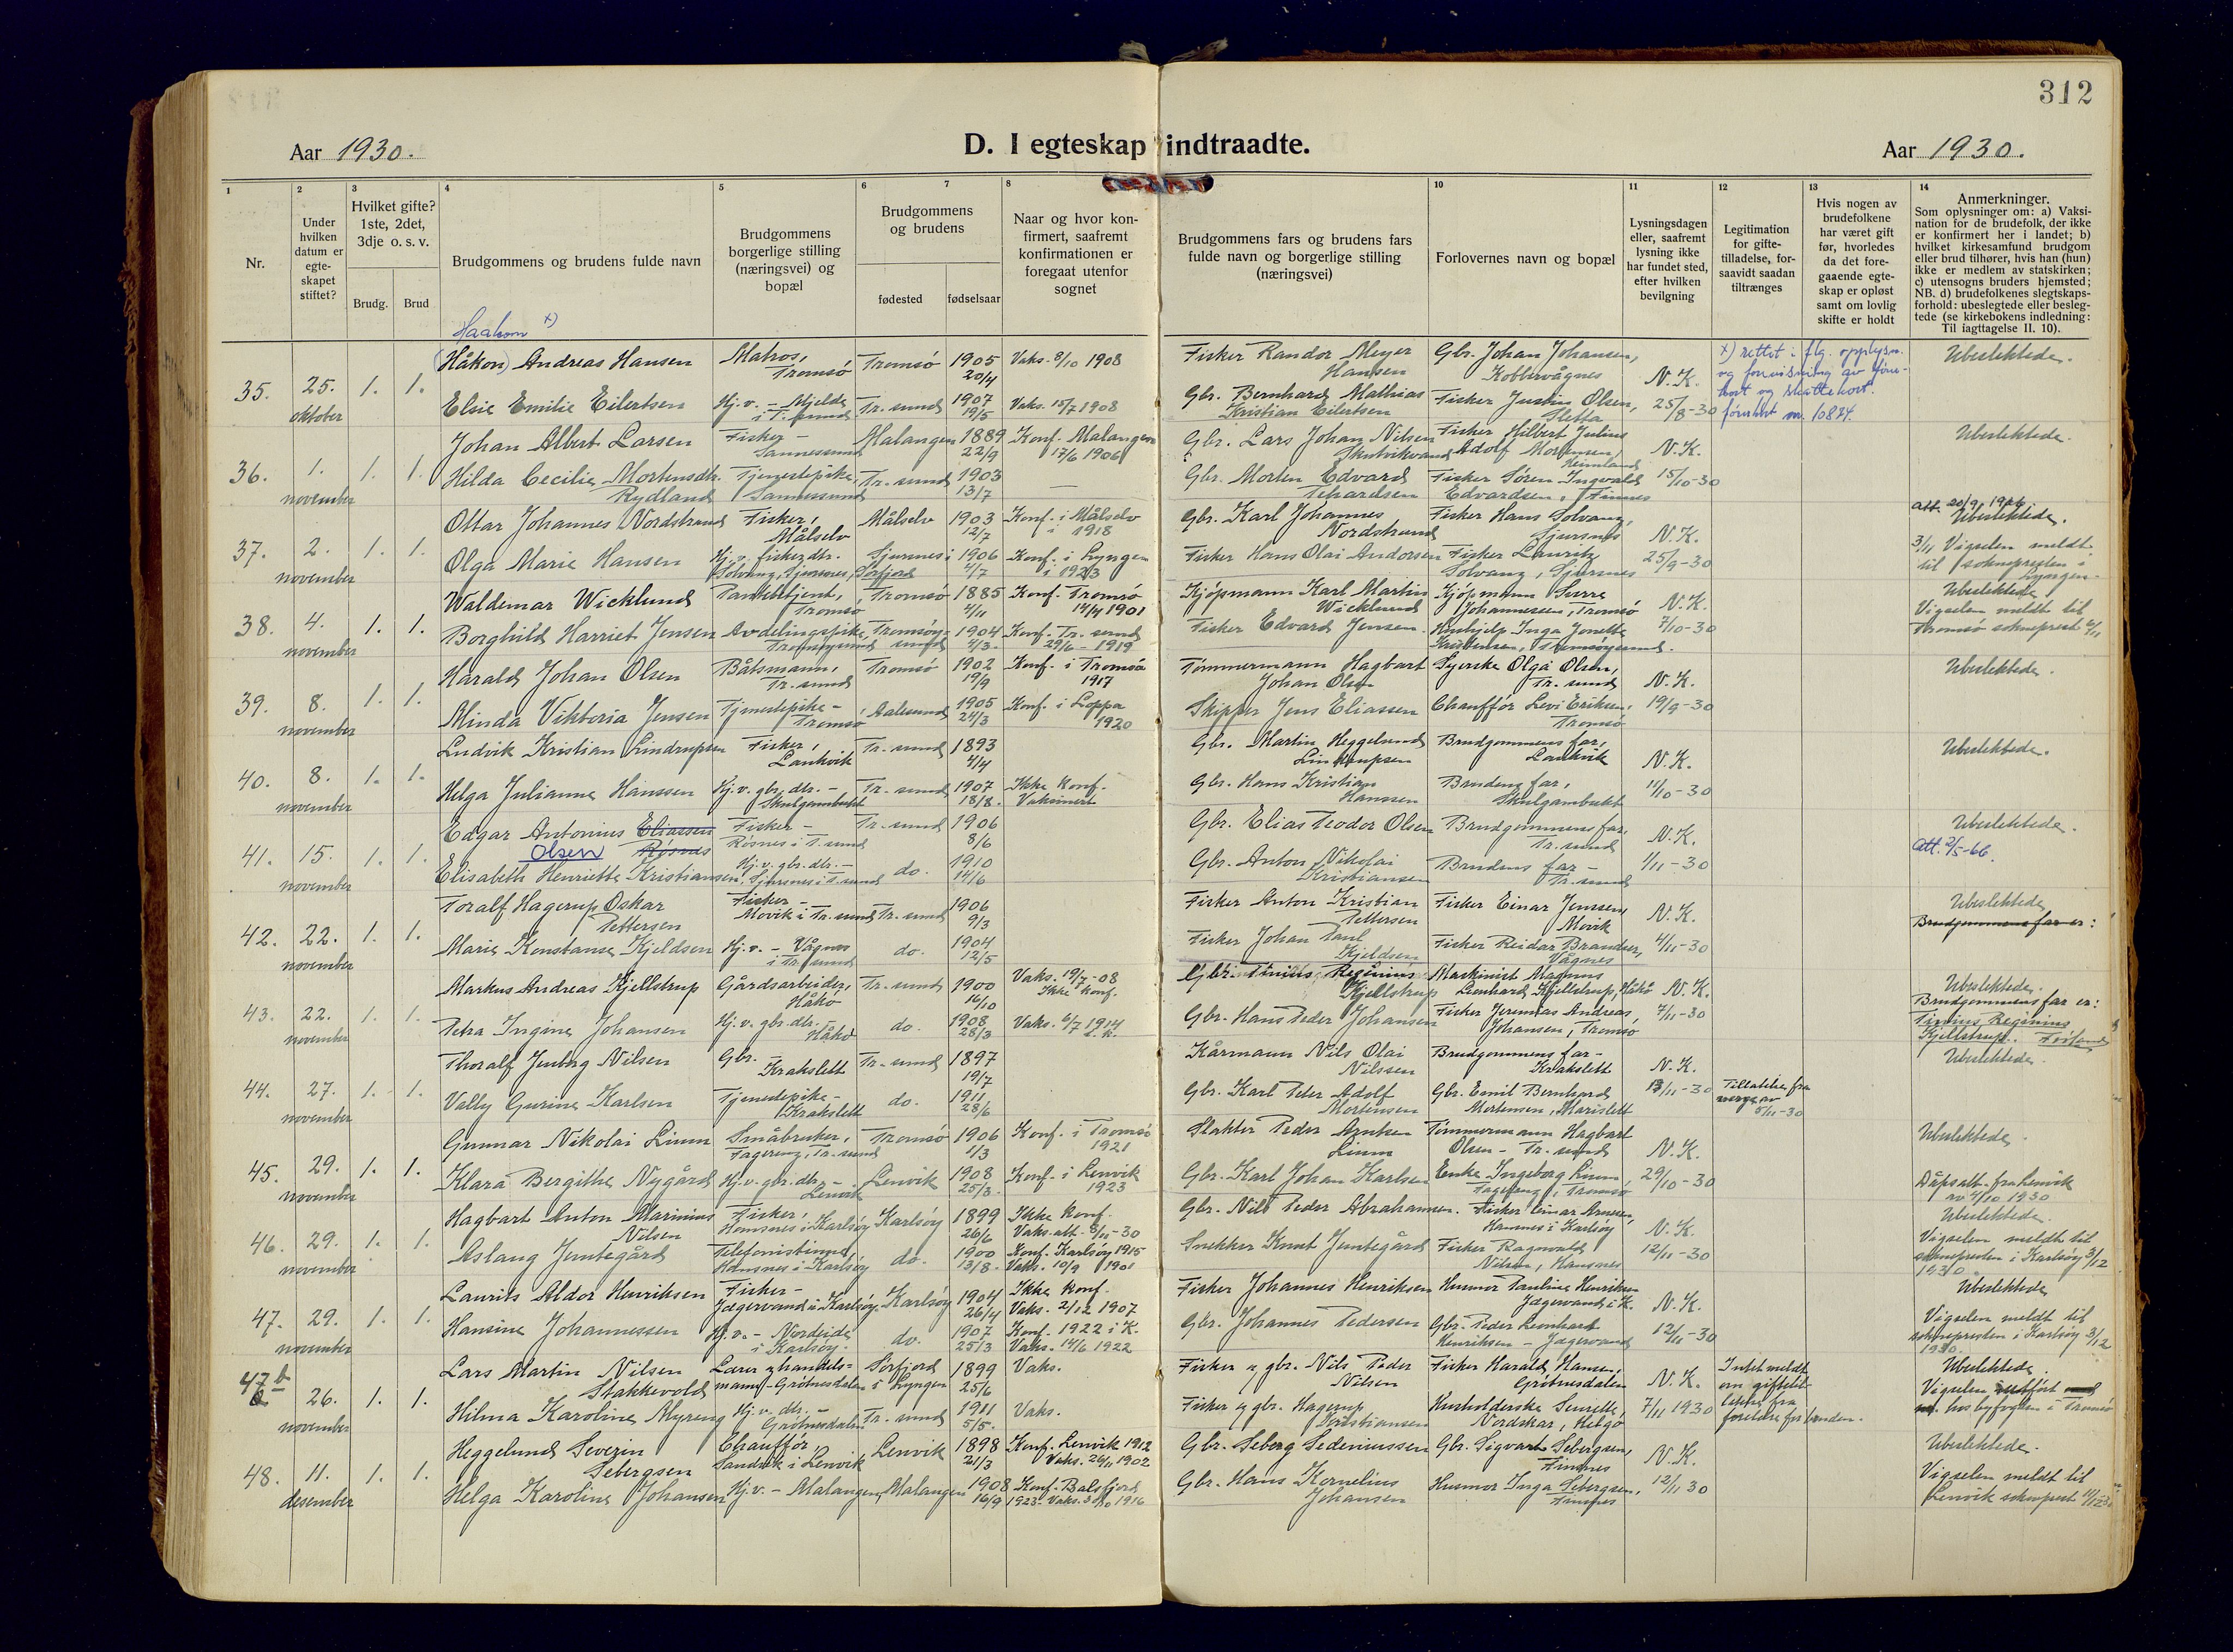 312
Aar 1930.
D. I egteskap indtraadte.
Aar 1930.
1 2 3 4 5 6 7 8 10 11 12 13 14
Nr.
Under hvilken datum er egte- skapet stiftet?
Hvilket gifte? 1ste, 2det, 3dje o. s. v.
Brudg. Brud
Brudgommens og brudens fulde navn
Brudgommens borgerlige stilling (næringsvei) og bopæl
Brudgommens og brudens
fødested fødselsaar
Naar og hvor kon- firmert, saafremt konfirmationen er foregaat utenfor sognet
Brudgommens fars og brudens fars fulde navn og borgerlige stilling (næringsvei)
Forlovernes navn og bopæl
Lysningsdagen eller, saafremt lysning ikke har fundet sted, efter hvilken bevilgning
Legitimation for gifte- tilladelse, for- saavidt saadan tiltrænges
Hvis nogen av brudefolkene har været gift før, hvorledes da det fore- gaaende egte- skap er opløst samt om lovlig skifte er holdt
Anmerkninger.
Som oplysninger om: a) Vaksi- nation for de brudefolk, der ikke er konfirmert her i landet; b) hvilket kirkesamfund brudgom eller brud tilhører, hvis han (hun) ikke er medlem av statskirken; c) utensogns bruders hjemsted; NB. d) brudefolkenes slegtskaps- forhold: ubeslegtede eller besleg- tede (se kirkebokens indledning: Til iagttagelse II. 10).
Haakon x)
35. 25. oktober 1. 1.
(Håkon) Andreas Hansen Matros, Tromsö Tromsö 1905 20/4 Vaks. 8/10 1908 Fisker Randor Meyer Hansen Gbr. Johan Johansen, Kobbervågnes N.K. 25/8-30 x) rettet i flg. opplysn. og forevisning av före- kort og skattekort. förerkort nr. 10824. Ubeslektede.
Elsie Emilie Eilertsen Hj.v. - Mjelde i T.sund Tr.sund 1907 19/5 Vaks. 15/7 1908 Gbr. Bernhard Mathias Kristian Eilertsen Fisker Justin Olsen, Sletta
36. 1. november 1. 1.
Johan Albert Larsen Fisker - Sannessund Malangen 1889 22/9 Konf. Malangen 17/6 1906 Gbr. Lars Johan Nilsen Skutvikvand Fisker Hilbert Julius Adolf Mortensen, Heimland N.K. 15/10-30 Ubeslektede.
Hilda Cecilie Mortensdtr. Rydland Tjenestepike, Sannessund Tr.sund 1903 13/7 — Gbr. Morten Edvard Fisker Sören Ingvald Edvardsen, Finnes
37. 2. november 1. 1.
Ottar Johannes Nordstrand Fisker, Målselv Målselv 1903 12/7 Konf. i Målselv i 1918 Gbr. Karl Johannes Nordstrand Fisker Hans Solvang, Sjursnes N.K. 25/9-30 att. 20/9 1926. Ubeslektede.
Olga Marie Hansen Hj.v. fiskerdtr. Solvang, Sjursnes, Sjursnes i Sörfjord 1906 4/7 Konf. i Lyngen i 1923 Fisker Hans Olai Andorsen Fisker Lauritz Solvang, Sjursnes 3/11 Vigselen meldt til sokneprsten i Lyngen.
38. 4. november 1. 1.
Waldemar Wicklund Tromsö Tromsö 1885 4/11 Konf. Tromsö 14/4 1901 Kjöpmann Karl Martin Wicklund Kjöpmann Johannessen, Tromsö N.K. 7/10-30 Ubeslektede Vigselen meldt til Tromsö sokneprest
Borghild Harriet Jensen Avdelingspike, Tromsöysund Tromsöysund 1904 4/3. Konf. Tr.sund 29/6 - 1919 Fisker Edvard Jensen. Hushjelp Inga Jonette Kristensen, Tromsöysund.
39. 8. november 1. 1.
Harald Johan Olsen Båtsmann, Tr.sund Tromsö 1902 19/9 Konf. i Tromsö 1917 Tömmermann Hagbart Johan Olsen Syerske Olga Olsen, Tr.sund N.K. 19/9-30 Ubeslektede.
Minda Viktoria Jensen Tjenestepike - Tromsö Aalesund 1905 24/3 Konf. i Loppa 1920 Skipper Jens Eliassen Chaufför Levi Eriksen, Tromsö
40. 8. november 1. 1.
Ludvik Kristian Lindrupsen Fisker, Lankvik Tr.sund 1893 4/4 Gbr. Martin Heggelund Lindrupsen Brudgommens far, Lankvik N.K. 11/10-30 Ubeslektede.
Helga Julianne Hanssen Hj.v. gbr. dtr. - Skulgambukt Tr.sund 1907 18/8. Ikke konf. Vaksinert Gbr. Hans Kristian Hanssen Brudens far, Skulgambukt
41. 15. november 1. 1.
Edgar Antonius Eliassen Olsen Røsnes Fisker - Røsnes i T.sund Tr.sund 1906 8/6 Gbr. Elias Teodor Olsen Brudgommens far, Tr.sund N.K. 1/11-30 Ubeslektede. att. 2/5-66.
Elisabeth Henriette Kristiansen, Hj.v. gbr. dtr. - Sjursnes i T.sund do. 1910 14/6 Gbr. Anton Nikolai Kristiansen Brudens far - Tr.sund
42. 22. november 1. 1.
Toralf Hagerup Oskar Pettersen Fisker - Movik i Tr.sund Tr.sund 1906 9/3 Fisker Anton Kristian Pettersen Fisker Einar Jenssen, Movik N.K. 4/11-30 Ubeslektede Brudgommens far er:
Marie Konstanse Kjeldsen Hj.v. - Vågnes i Tr.sund do. 1904 12/5 Fisker Johan Paul Kjeldsen Fisker Reidar Brandser, Vågnes
43. 22. november 1. 1.
Markus Andreas Kjellstrup Gårdsarbeider, Håkö Tr.sund 1900 16/10 Vaks. 19/7-08 Ikke konf. Gbr. Tinius Reginius Kjellstrup Maskinist Magnus Leonhard Kjellstrup, Håkö N.K. 7/11-30 Ubeslektede. Brudgommens far er: Tinius Reginius Kjellstrup.
Petra Ingine Johansen Hj.v. gbr. dtr. - Håkö do. 1908 28/3 Vaks. 6/7 1914 Gbr. Hans Peder Johansen Fisker Jeremias Andreas Johansen, Tromsö
44. 27. november 1. 1.
Thoralf Jenberg Nilsen Gbr. Krakslett Tr.sund 1897 19/7 Kårmann Nils Olai Nilssen Brudgommens far - Krakslett N.K. 13/11-30 Tillatelse fra verge av 5/11-30 Ubeslektede.
Vally Gurine Karlsen Tjenestepike - Krakslett do. 1911 28/6 Gbr. Karl Peter Adolf Mortensen Gbr. Emil Bernhard Mortensen, Marislett
45. 29. november 1. 1.
Gunnar Nikolai Linm Småbruker, Fagereng, Tr.sund Tromsö 1906 1/3 Konf. i Tromsö 1921 Slakter Peder Arntsen Tömmermann Hagbart Olsen - Tr.sund N.K. 29/10-30 Ubeslektede.
Klara Bergithe Nygård Hj.v. gbr. dtr. - Lenvik Lenvik 1908 25/3. Konf. i Lenvik 1923 Gbr. Karl Johan Karlsen Enke Ingeborg Fagereng, Tromsö Dåpsatt. fra Lenvik av 4/10 1930
46. 29. november 1. 1.
Hagbart Anton Marinius Nilsen Fisker, Hansnes i Karlsöy Karlsöy 1899 26/6 Ikke konf. Vaks. att. 8/11-30 Gbr. Nils Peder Abrahamsen. Fisker Einar Arnesen, Hansnes i Karlsöy N.K. 12/11-30 Ubeslektede.
Aslaug Jemtegård Telefonistinne, Hansnes i Karlsöy do. 1900 13/8. Konf. Karlsöy 1915 Vaks. 10/9 1901 Snekker Knut Jemtegård Fisker Ragnvald Nilsen, Hansnes Vigselen meldt til sokneprsten i Karlsöy 3/12 1930
47. 29. november 1. 1.
Laurits Aldor Henriksen Fisker - Jægervand i Karlsöy. Karlsöy 1904 26/4 Ikke konf. Vaks. 2/12 1907 Fisker Johannes Henriksen Husmor Pauline Henriksen Jægervand i K. N.K. 12/11-30 Ubeslektede
Hansine Johannessen Hj.v. - Nordeide i Karlsöy. do. 1907 25/3 Konf. 1922 i K. Vaks. 14/6 1922 Gbr. Johannes Pedersen Gbr. Peder Leonhart Henriksen - Jægervand Vigselen meldt til sokneprsten i Karlsöy 3/12 1930.
47 b 26. november 1. 1.
Lars Martin Nilsen Stakkevold Lærer og handels- mann - Grötnesdalen Sörfjord i Lyngen 1899 25/6 Vaks. Fisker og gbr. Nils Peder Nilsen Fisker Harald Hansen, Grötnesdalen N.K. 7/11 1930 Intet meldt om giftetil- fra foreldre for bruden. Ubeslektede.
Hilma Karoline Myreng Hj.v. dtr. - Grötnesdalen Tr.sund 1911 5/5. Vaks. Fisker og gbr. Hagerup Kristiansen Husholderske Senette, Nordskar, Helgö Vigselen utfört hos byfogden i Tromsö
48. 11. desember 1. 1.
Heggelund Severin Sebergsen Chaufför, Sandvik i Lenvik Lenvik 1898 21/3 Konf. Lenvik 1912 Vaks. 26/11 1902 Gbr. Seberg Sedeniussen Gbr. Sigvart Sebergsen, Finnes N.K. 12/11 30 Ubeslektede.
Helga Karoline Johansen Hj.v. - Malangen, Malangen 1908 16/9 Konf. Balsfjord 1923. Vaks. 1916 Gbr. Hans Kornelius Johansen Husmor Inga Sebergsen, Finnes Vigselen meldt til Lenvik sokneprest